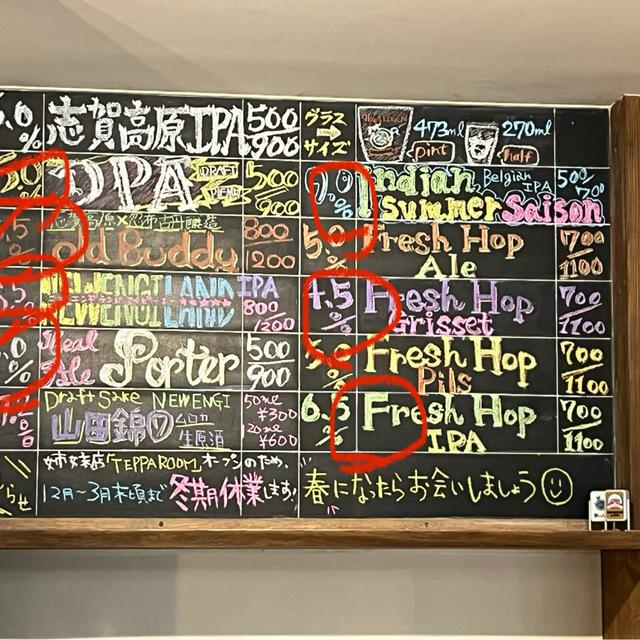 志賀高原IPA 500/900
DPA DRAFT 500/900
志賀高原×
Old Buddy 800/1200
NEW ENGILAND IPA 800/1200
Real Ale Porter 500/900
Draft Sake NEW ENGI
山田錦 ムロカ 生原酒 50ml ¥300 120ml ¥600
姉妹店「TEPPA ROOM」オープンのため、
12月〜3月末頃まで 冬期休業します!
グラスサイズ 473ml pint 270ml half
Indian Summer Saison Belgian IPA 500/700
5.0% Fresh Hop Ale 700/1100
4.5% Fresh Hop Grisset 700/1100
5.0% Fresh Hop Pils 700/1100
6.5% Fresh Hop IPA 700/1100
春になったらお会いしましょう